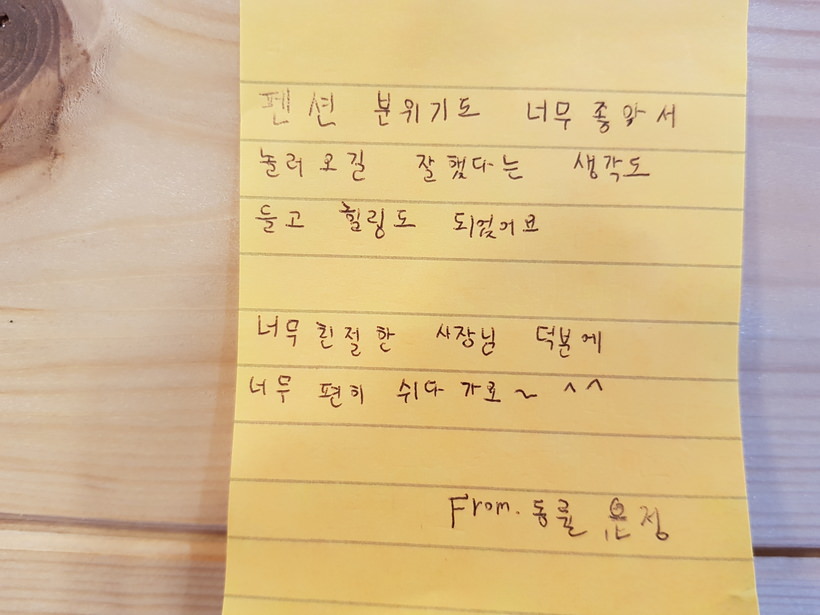 펜션 분위기도 너무 좋아서
놀러오길 잘했다는 생각도
들고 힐링도 되었어요
너무 친절한 사장님 덕분에
너무 편히 쉬다 가요~ ^^
From.